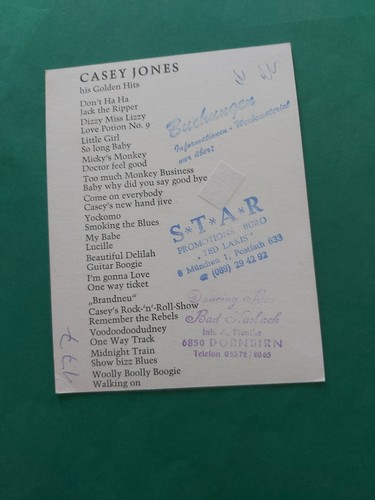 CASEY JONES
his Golden Hits
Don't Ha Ha
Jack the Ripper
Dizzy Miss Lizzy
Love Potion No. 9
Little Girl
So long Baby
Micky's Monkey
Doctor feel good
Too much Monkey Business
Baby why did you say good bye
Come on everybody
Casey's new hand jive
Yockomo
Smoking the Blues
My Babe
Lucille
Beautiful Delilah
Guitar Boogie
I'm gonna Love
One way ticket
„Brandneu”
Casey's Rock-'n'-Roll-Show
Remember the Rebels
Voodoodoodudney
One Way Track
Midnight Train
Show bizz Blues
Woolly Boolly Boogie
Walking on
Buchungen
Informationen - Werbematerial
nur über:
S*T*A*R
PROMOTIONS BÜRO
"TED LAAIS"
8 München 1, Postfach 633
☎ (089) 29 42 92
Bad Haslach
6850 DORNBIRN
Telefon 05572/8065